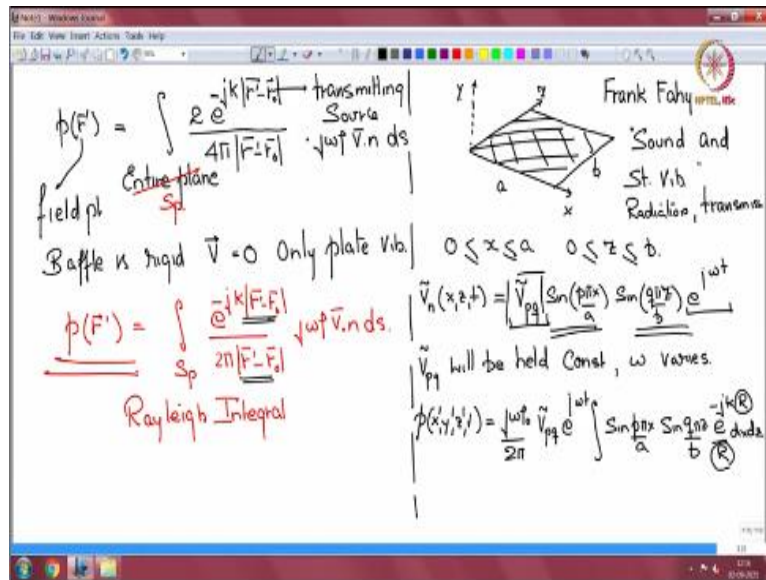 Note1 - Windows Journal
File Edit View Insert Actions Tools Help
p(r̄') = ∫ 2 e^{-jk|r̄'-r̄₀|} / 4π|r̄'-r̄₀| jωρ v̄.n ds
transmitting
Source
field pt
Entire plane
Sp
Baffle is rigid V⃗ = 0 Only plate vib.
p(r̄') = ∫ e^{-jk|r̄'-r̄₀|} / 2π|r̄'-r̄₀| jωρ v̄.n ds.
Sp
Rayleigh Integral
y
z
a
b
x
Frank Fahy
NPTEL, IISc
"Sound and
St. Vib"
Radiation, transmiss
0 ≤ x ≤ a 0 ≤ z ≤ b.
Ṽn(x,z,t) = |Ṽpq| Sin(pπx/a) Sin(qπz/b) e^{jωt}
Ṽpq will be held Const, ω varies.
p(x',y',z',t) = jωρ₀/2π Ṽpq e^{jωt} ∫ Sin pπx/a Sin qπz/b e^{-jkR}/R dxdz